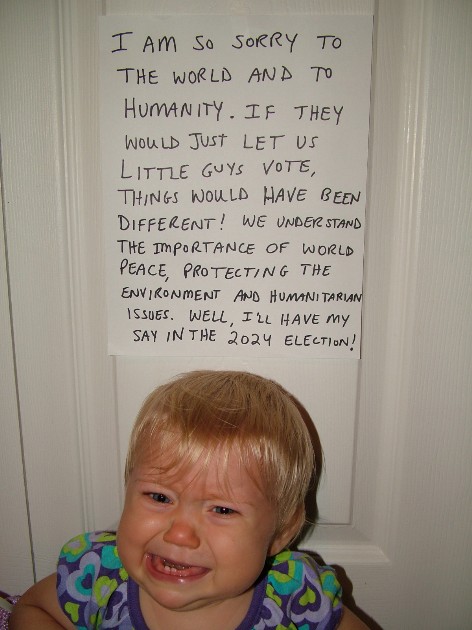 I AM SO SORRY TO
THE WORLD AND TO
HUMANITY. IF THEY
WOULD JUST LET US
LITTLE GUYS VOTE,
THINGS WOULD HAVE BEEN
DIFFERENT! WE UNDERSTAND
THE IMPORTANCE OF WORLD
PEACE, PROTECTING THE
ENVIRONMENT AND HUMANITARIAN
ISSUES. WELL, I'LL HAVE MY
SAY IN THE 2024 ELECTION!